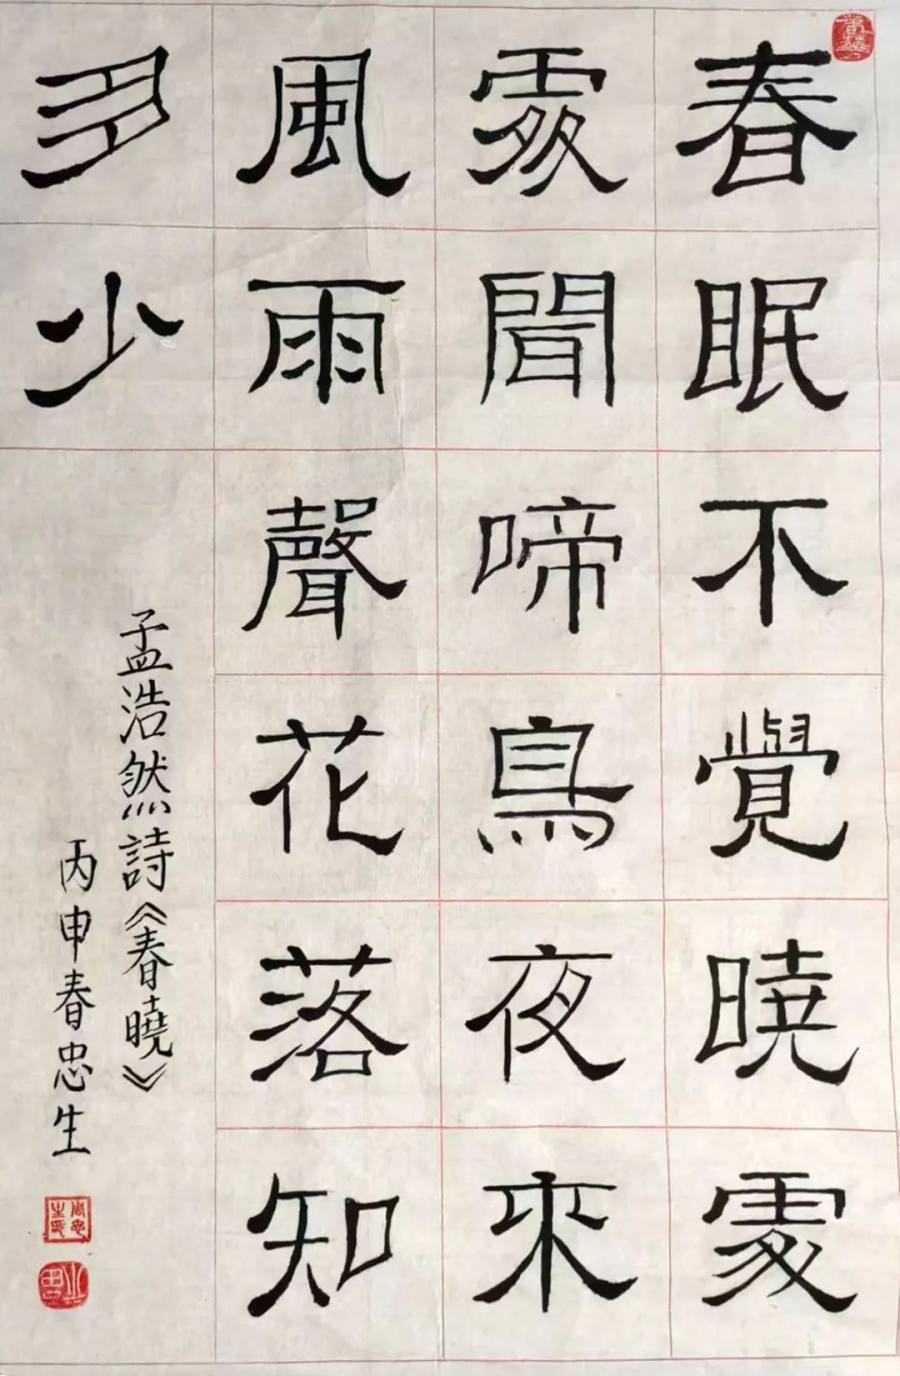 春眠不覺曉處
處聞啼鳥夜來
風雨聲花落知
多少
孟浩然詩《春曉》
丙申春忠生